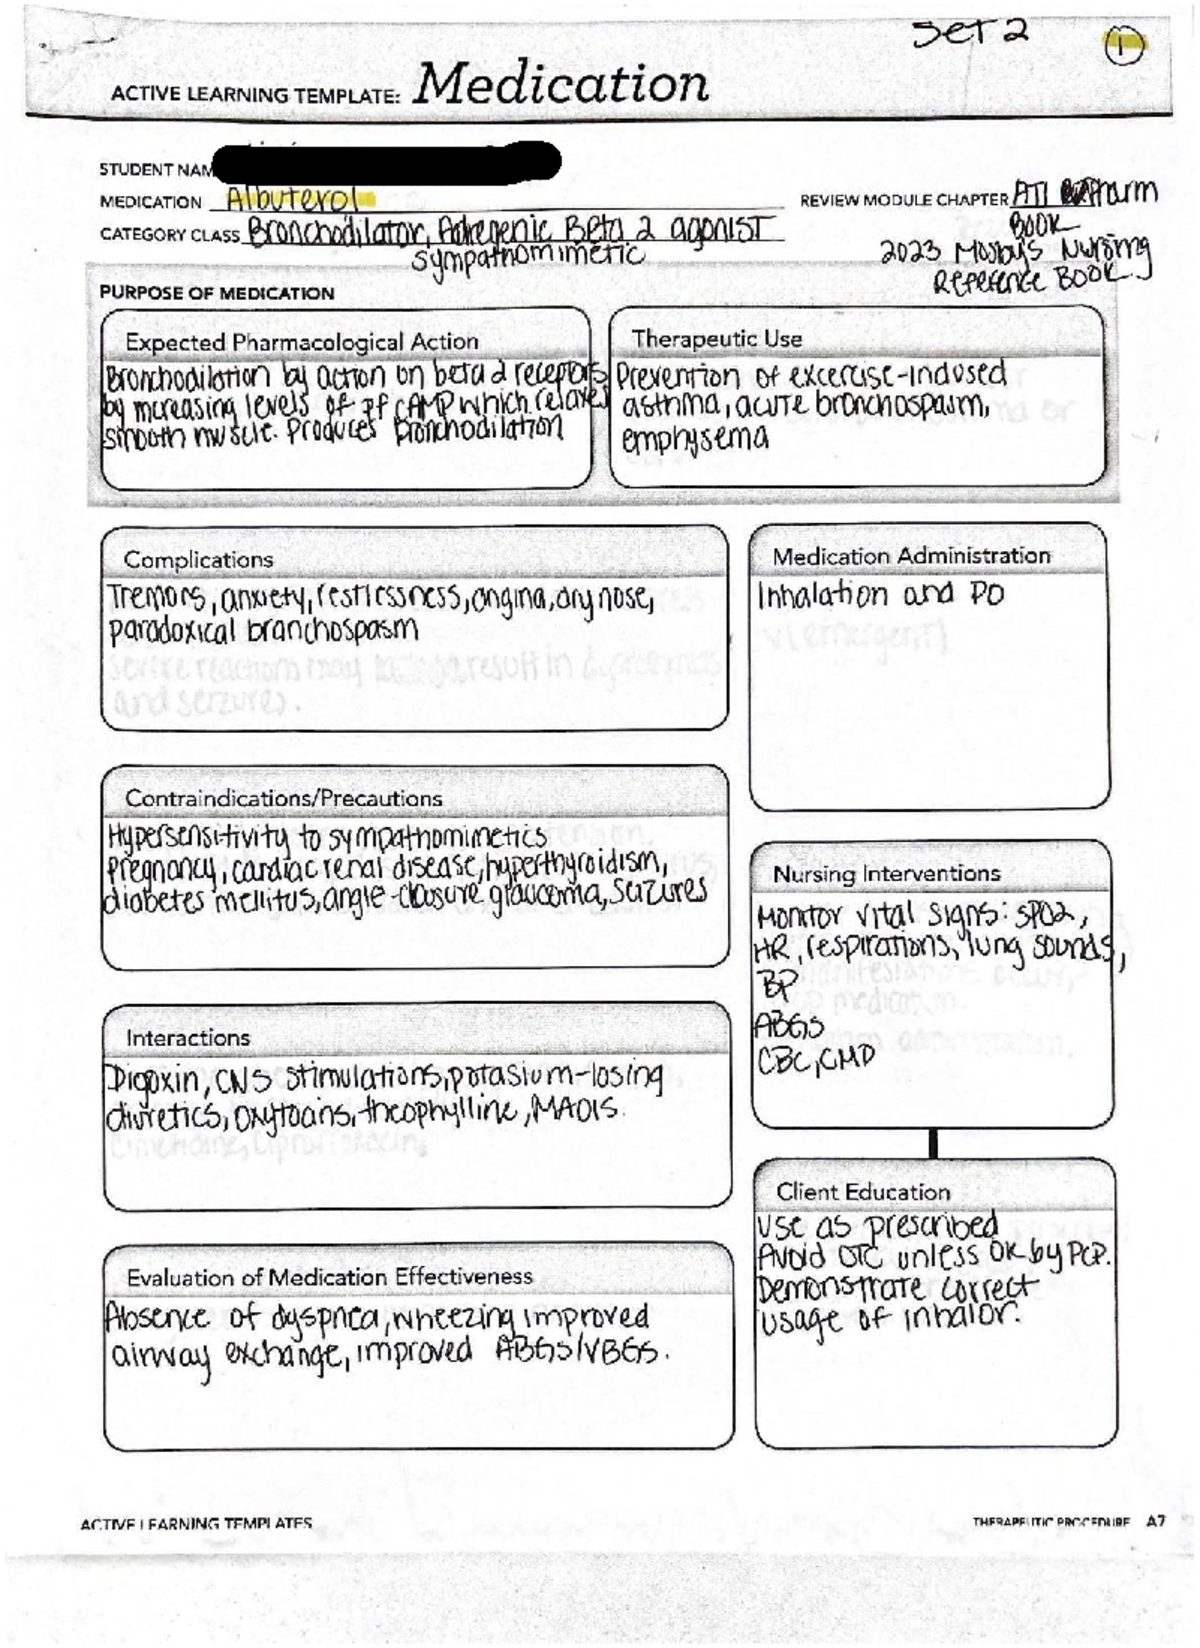 Set 2
1
ACTIVE LEARNING TEMPLATE: Medication
STUDENT NAM
MEDICATION Albuterol
REVIEW MODULE CHAPTER ATI Pharm
BOOK
CATEGORY CLASS Bronchodilator, Adregenic Beta 2 agonist
sympathomimetic
2023 Mosby's Nursing
Reference Book.
PURPOSE OF MEDICATION
Expected Pharmacological Action
Bronchodilation by action on beta 2 receptors
by increasing levels of cAMP which relaxes
smooth muscle. Produces bronchodilation
Therapeutic Use
Prevention of excercise-indused
asthma, acute bronchospasm,
emphysema
Complications
Tremors, anxiety, restlessness, angina, dry nose,
paradoxical branchospasm
severe reactions may result in
and seizures.
Medication Administration
Inhalation and PO
IV (emergent)
Contraindications/Precautions
Hypersensitivity to sympathomimetics
Pregnancy, cardiac renal disease, hyperthyroidism,
diabetes mellitus, angle-closure glaucoma, seizures
Nursing Interventions
Monitor vital signs: SPO2,
HR, respirations, lung sounds,
BP
ABGs
CBC, CMP
Interactions
Digoxin, CNS stimulations, potasium-losing
diuretics, oxytocins, theophylline, MAOIS.
Cimetidine, Ciprofloxacin,
Evaluation of Medication Effectiveness
Absence of dyspnea, wheezing improved
airway exchange, improved ABGs/VBGs.
Client Education
Use as prescribed
Avoid OTC unless ok by PCP.
Demonstrate correct
usage of inhalor.
ACTIVE LEARNING TEMPLATES
THERAPEUTIC PROCEDURE A7